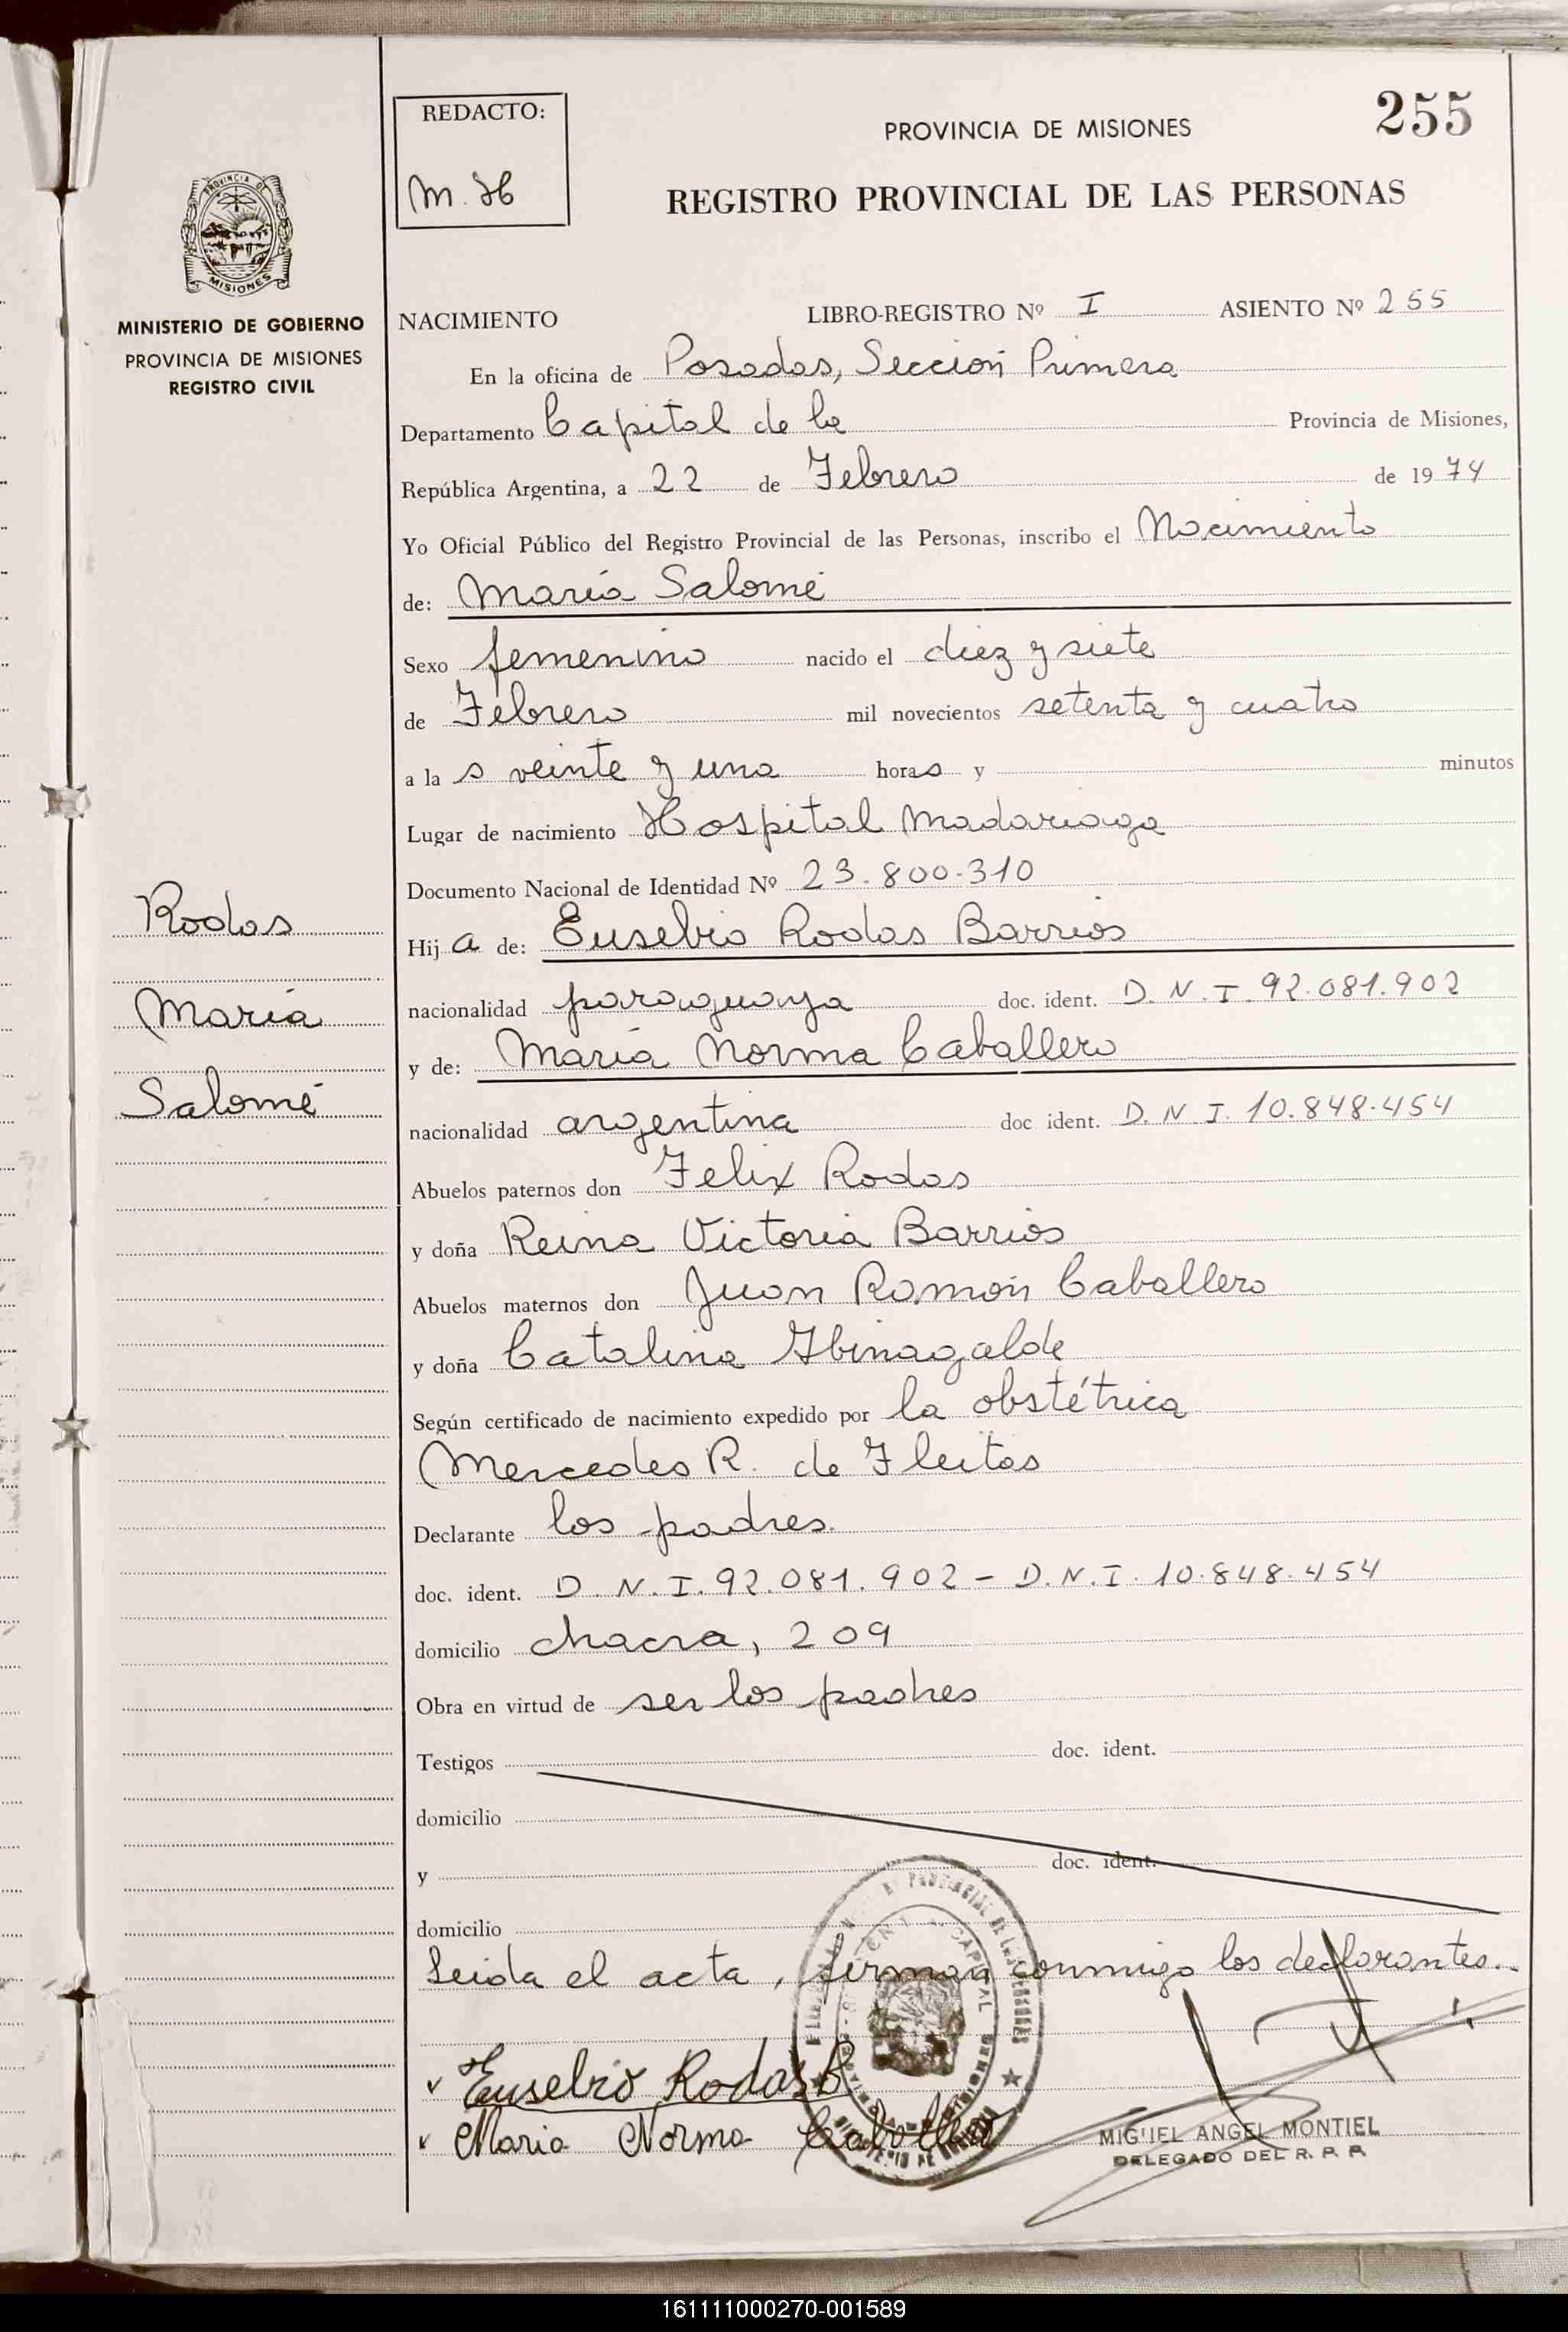 255
REDACTO:
M. H
PROVINCIA DE MISIONES
REGISTRO PROVINCIAL DE LAS PERSONAS
PROVINCIA DE
MISIONES
MINISTERIO DE GOBIERNO
PROVINCIA DE MISIONES
REGISTRO CIVIL
NACIMIENTO LIBRO-REGISTRO Nº I ASIENTO Nº 255
En la oficina de Posadas, Sección Primera
Departamento Capital de la Provincia de Misiones,
República Argentina, a 22 de Febrero de 1974
Yo Oficial Público del Registro Provincial de las Personas, inscribo el Nacimiento
de: María Salomé
Sexo femenino nacido el diez y siete
de Febrero mil novecientos setenta y cuatro
a la s veinte y una horas y minutos
Lugar de nacimiento Hospital Madariaga
Documento Nacional de Identidad Nº 23.800.310
Rodas
María
Salomé
Hija de: Eusebio Rodas Barrios
nacionalidad paraguaya doc. ident. D.N.I. 92.081.902
y de: María Norma Caballero
nacionalidad argentina doc ident. D.N.I. 10.848.454
Abuelos paternos don Felix Rodas
y doña Reina Victoria Barrios
Abuelos maternos don Juan Ramón Caballero
y doña Catalina Ibinagalde
Según certificado de nacimiento expedido por la obstétrica
Mercedes R. de Fleitas
Declarante los padres.
doc. ident. D.N.I. 92.081.902 - D.N.I. 10.848.454
domicilio chacra, 209
Obra en virtud de ser los padres
Testigos doc. ident.
domicilio
y doc. ident.
domicilio
Leida el acta, firman conmigo los declarantes.
Eusebio Rodas B
Maria Norma Caballero
MIGUEL ANGEL MONTIEL
DELEGADO DEL R. P. P.
161111000270-001589